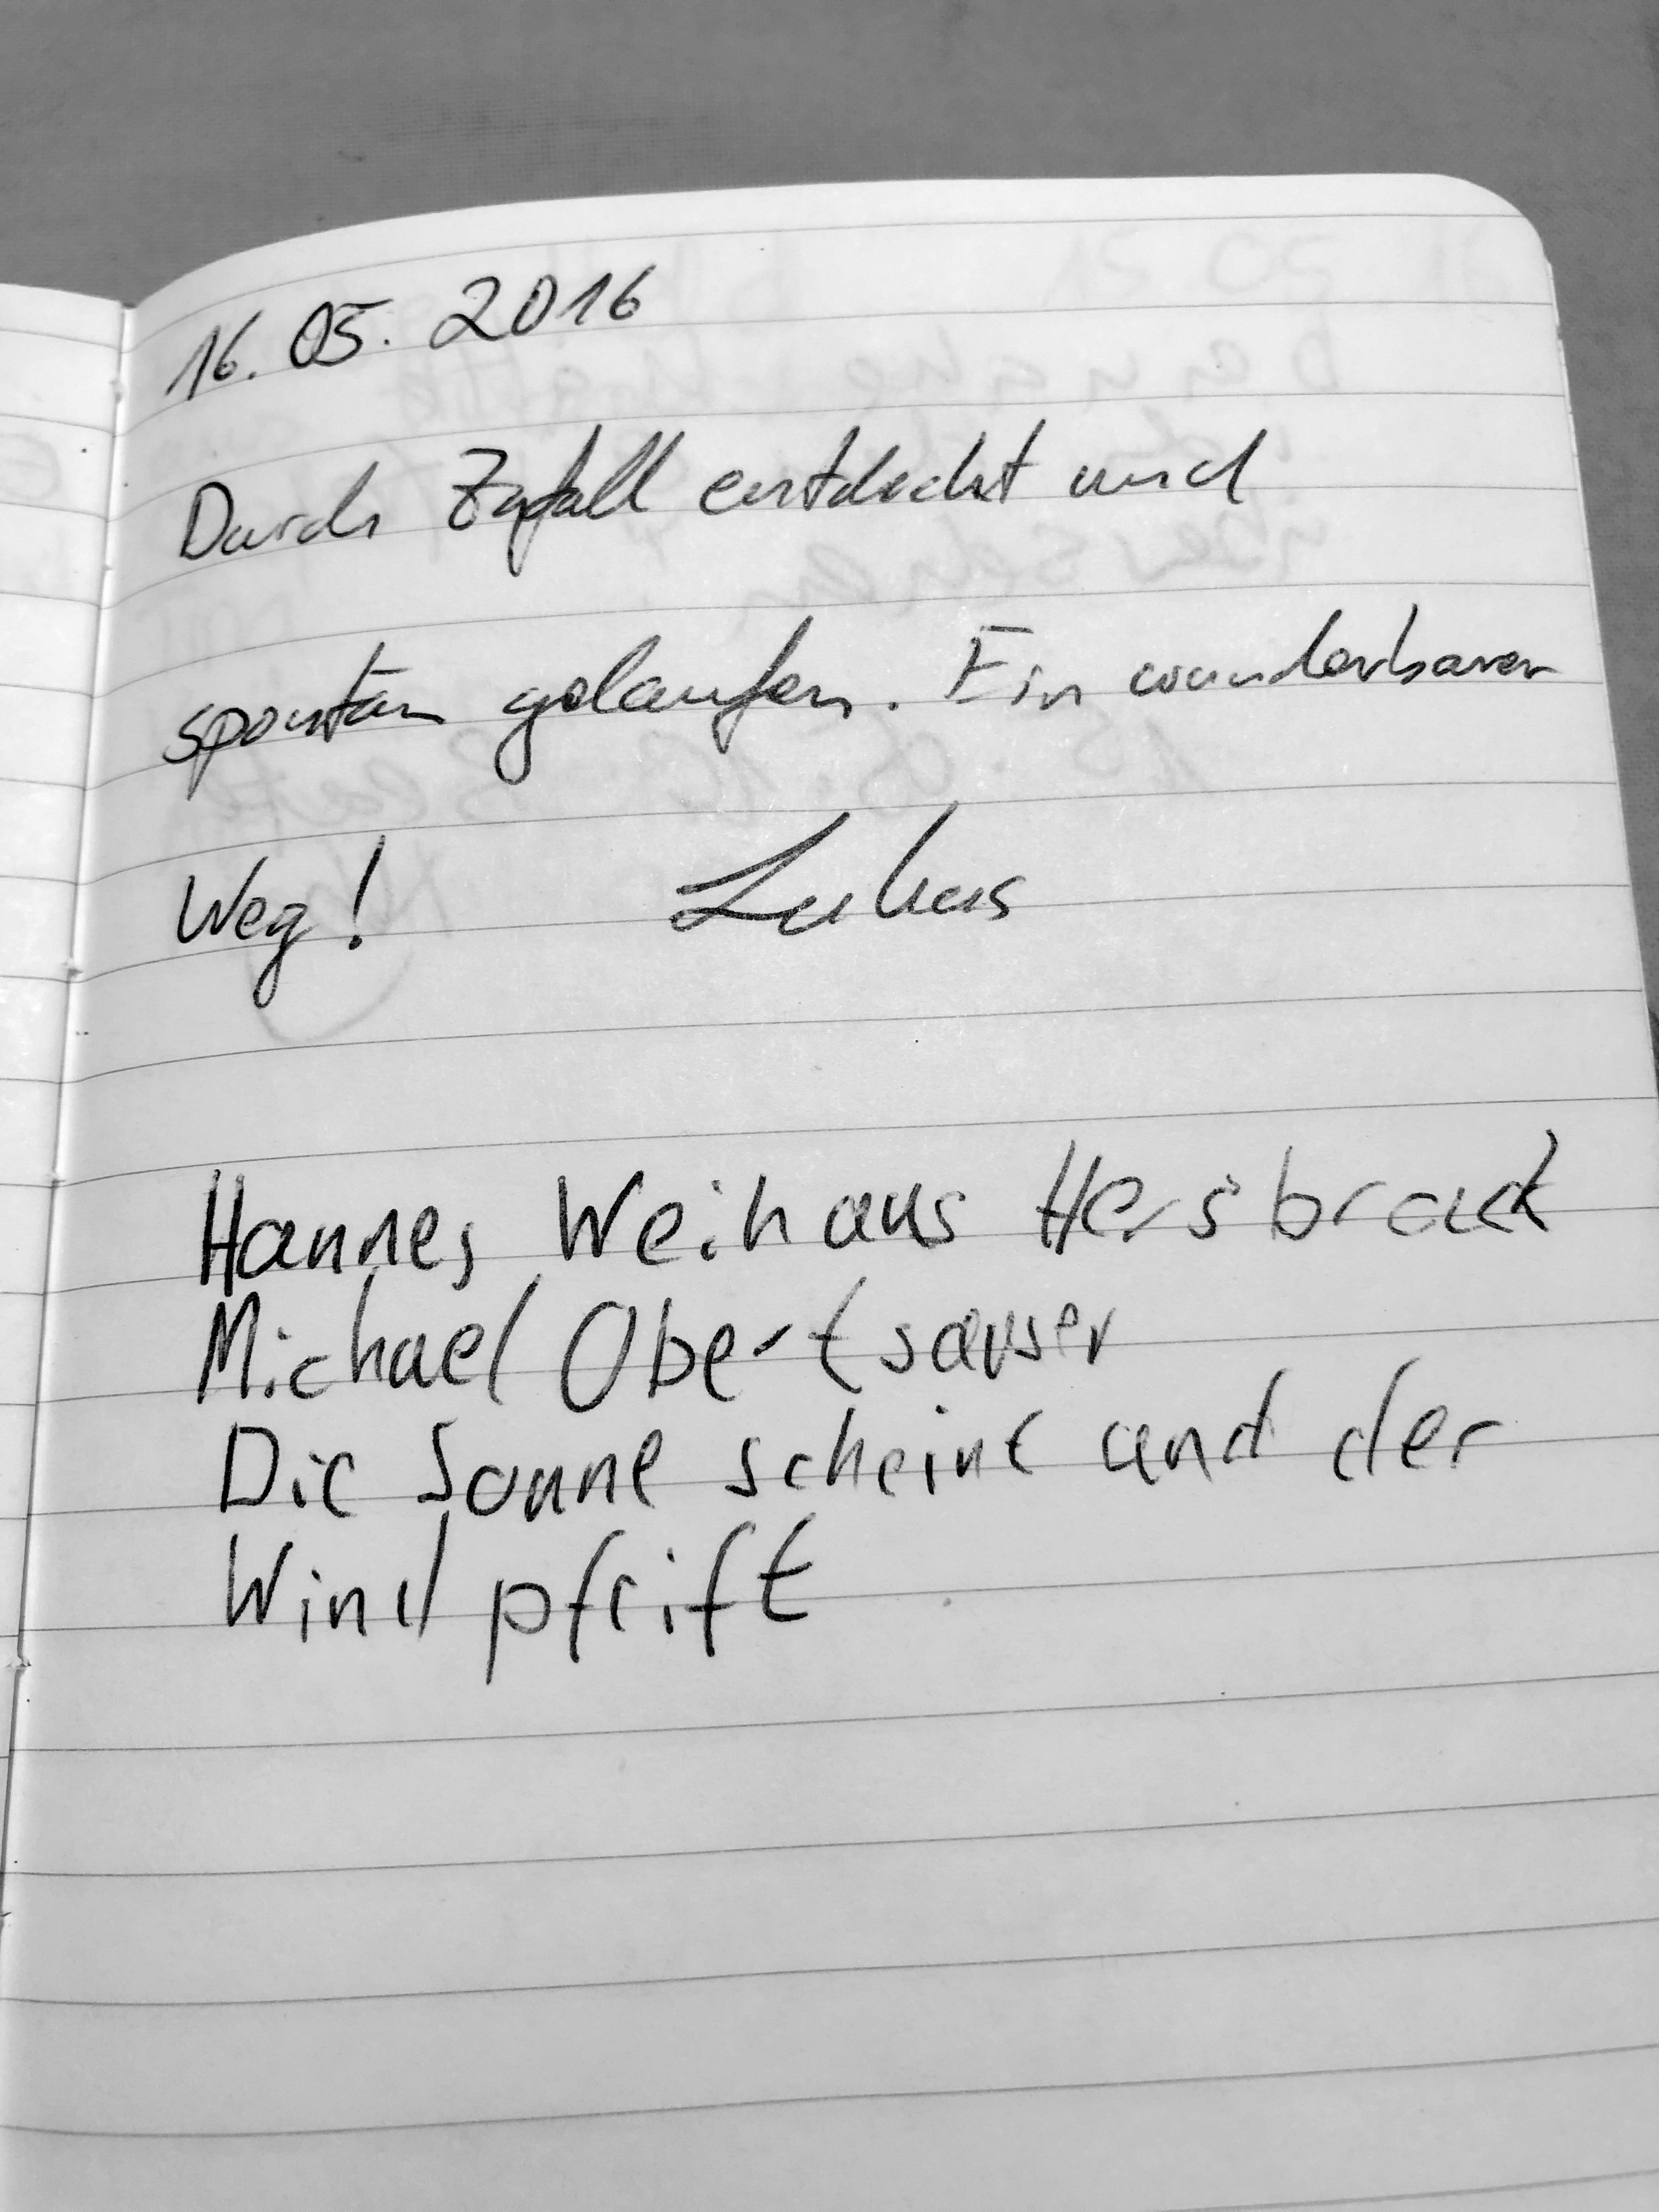 16.05.2016
Durch Zufall entdeckt und
spontan gelaufen. Ein wunderbarer
Weg! Lukas
Hannes Weihaus Hersbruck
Michael Obertsauser
Die Sonne scheint und der
Wind pfeift